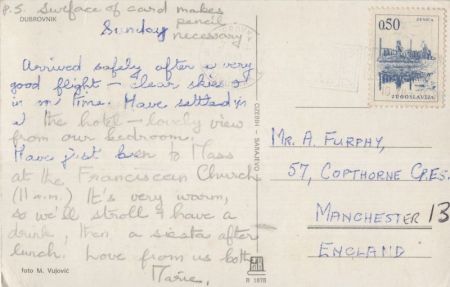 P.S. Surface of card makes
pencil
necessary
DUBROVNIK
Sunday
Arrived safely after a very
good flight – clear skies &
in no time. Have settled in
at the hotel – lovely view
from our bedroom.
Have just been to Mass
at the Franciscan Church
(11 a.m.) It's very warm,
so we'll stroll & have a
drink, then a siesta after
lunch. Love from us both
Marie,
foto M. Vujović
SARAJEVO
R 1878
ZENICA
0,50
JUGOSLAVIJA
Mr. A. FURPHY,
57, COPTHORNE CRES.
MANCHESTER 13
ENGLAND